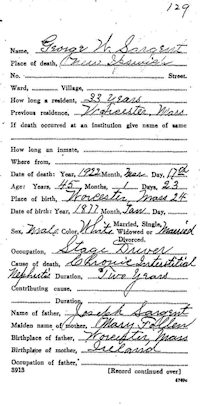 129
Name, George W. Sargent
Place of death, Ipswich
No. Street.
Ward, Village,
How long a resident, 23 Years
Previous residence, Worcester, Mass
If death occurred at an institution give name of same
How long an inmate,
Where from,
Date of death: Year, 1922 Month, Day, 17th
Age: Years, 45 Months, 1 Days, 23
Place of birth, Worcester, Mass
Date of birth: Year, 1877 Month, Jan Day,
Married, Single,
Sex, Male Color, White Widowed or Married
Divorced.
Occupation, Stage Driver
Cause of death, Chronic Interstitial
Nephritis Duration, Two Years
Contributing cause,
Duration,
Name of father, Joseph Sargent
Maiden name of mother, Mary
Birthplace of father, Worcester, Mass
Birthplace of mother, Ireland
Occupation of father,
3913 (Record continued over)